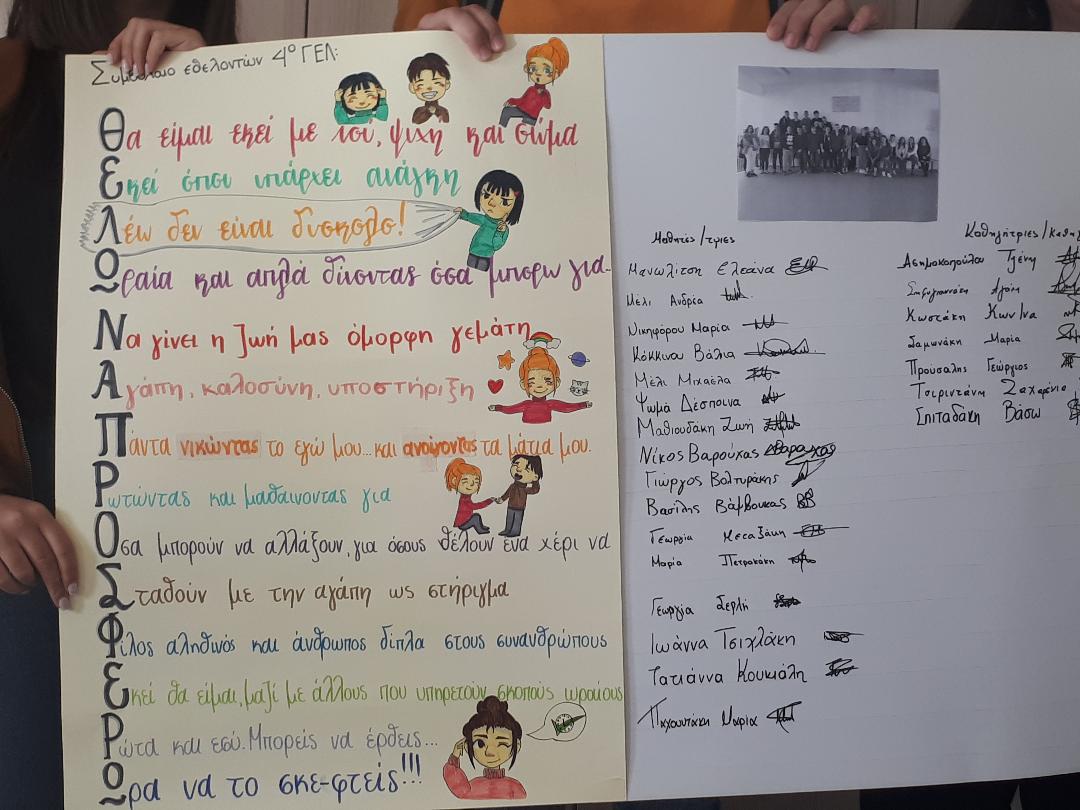 Συμβόλαιο εθελοντών 4ο ΓΕΛ:
Θα είμαι εκεί με νου, ψυχή και σώμα
Εκεί όπου υπάρχει ανάγκη
Λέω δεν είναι δύσκολο!
Ωραία και απλά δίνοντας όσα μπορώ για..
Να γίνει η ζωή μας όμορφη γεμάτη
Αγάπη, καλοσύνη, υποστήριξη
Πάντα νικώντας το εγώ μου... και ανοίγοντας τα μάτια μου.
Ρωτώντας και μαθαίνοντας για
Όσα μπορούν να αλλάξουν, για όσους θέλουν ένα χέρι να
Σταθούν με την αγάπη ως στήριγμα
Φίλος αληθινός και άνθρωπος δίπλα στους συνανθρώπους
Εκεί θα είμαι, μαζί με άλλους που υπηρετούν σκοπούς ωραίους
Ρώτα και εσύ. Μπορείς να έρθεις...
Ώρα να το σκε-φτείς!!!
Μαθητές/τριες
Μανωλίτση Ελεάνα
Μέλι Ανδρία
Νικηφόρου Μαρία
Κόκκινου Βάλια
Μέλι Μιχαέλα
Ψωμά Δέσποινα
Μαθιουδάκη Ζωή
Νίκος Βαρούχας
Γιώργος Βολτυράκης
Βασίλης Βάμβουκας
Γεωργία
Μαρία Πετρακάκη
Γεωργία Σερλή
Ιωάννα Τσιχλάκη
Τατιάννα Κουκιάλη
Παχουντάκη Μαρία
Καθηγήτριες/καθη
Ασημακοπούλου Τζένη
Κωστάκη Κων/να
Σαμωνάκη Μαρία
Προύσαλης Γεώργιος
Τσιριντάνη Ζαχαρένια
Σπιταδάκη Βάσω